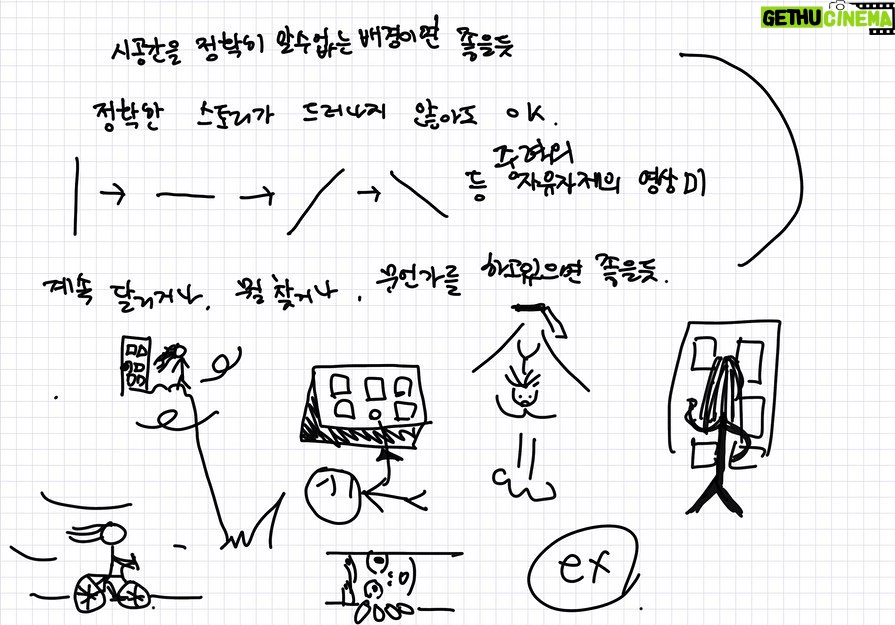 GETHU CINEMA
시공간을 정확히 알수없는 배경이면 좋을듯
정확한 스토리가 드러나지 않아도 OK.
등 자유자재의 영상미
계속 달리거나, 뭘 찾거나, 무언가를 하고있으면 좋을듯.
ex